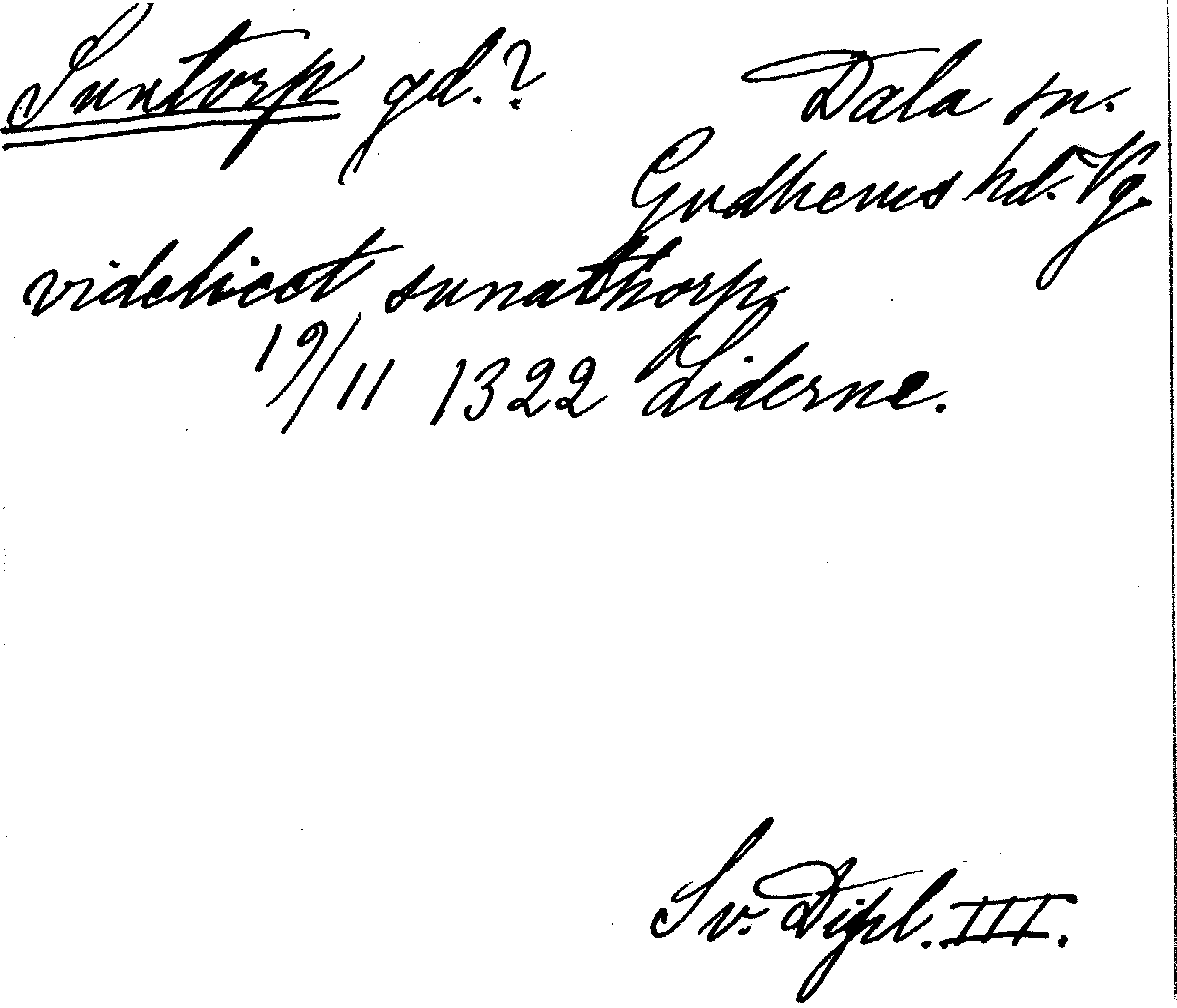 Suntorp gd.? Dala sn.
Gudhems hd. Vg.
videlicet sunathorp.
19/11 1322 Liderne.
Sv. Dipl. III.